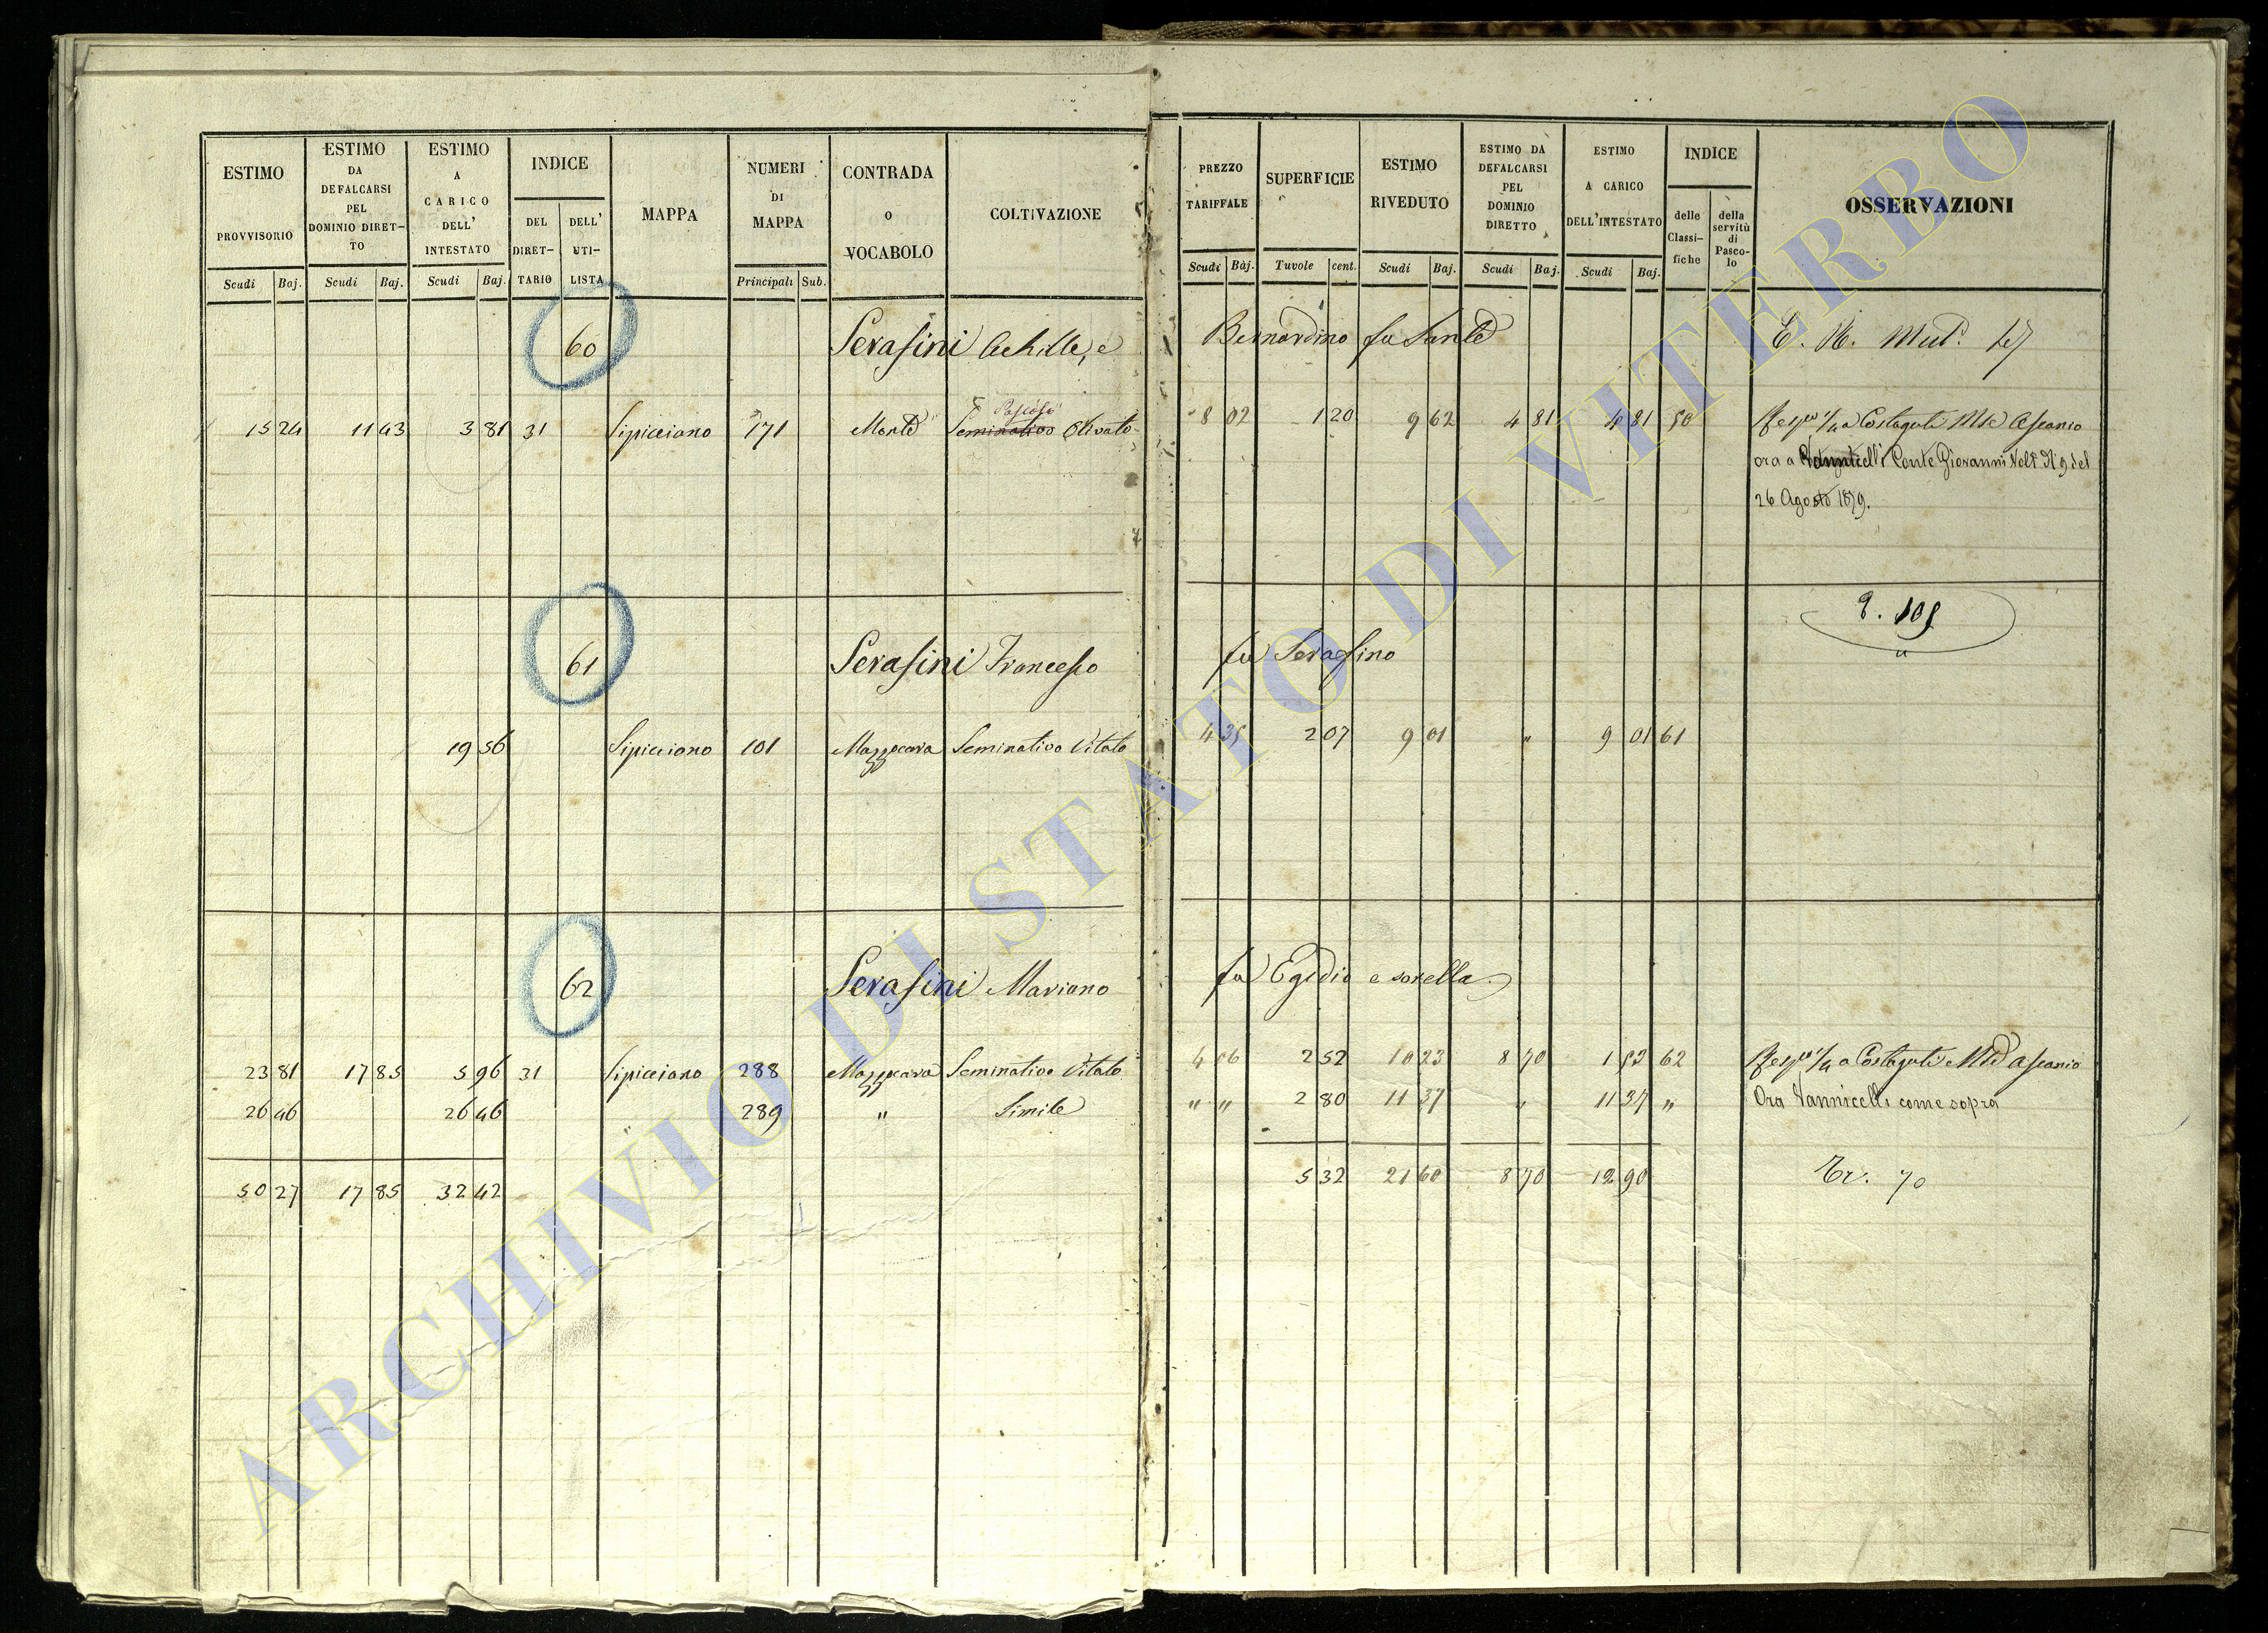 ESTIMO PROVVISORIO Scudi Baj.
ESTIMO DA DEFALCARSI PEL DOMINIO DIRET-TO Scudi Baj.
ESTIMO A CARICO DELL' INTESTATO Scudi Baj.
INDICE DEL DIRET-TARIO DELL' UTI-LISTA
MAPPA
NUMERI DI MAPPA Principali Sub.
CONTRADA o VOCABOLO
COLTIVAZIONE
PREZZO TARIFFALE Scudi Baj.
SUPERFICIE Tavole cent.
ESTIMO RIVEDUTO Scudi Baj.
ESTIMO DA DEFALCARSI PEL DOMINIO DIRETTO Scudi Baj.
ESTIMO A CARICO DELL'INTESTATO Scudi Baj.
INDICE delle Classi-fiche della servitù di Pasco-lo
OSSERVAZIONI
60 Serafini Achille, e Bernardino fu Sante
15 24 11 43 3 81 31 Sipicciano 171 Monte Seminativo Olivato 8 02 1 20 9 62 4 81 4 81 50 a Costaguti Ascanio
ora a Vannicelli Conte Giovanni del
26 Agosto 1879.
61 Serafini Francesco fu Serafino
19 56 Sipicciano 101 Mazzocava Seminativo Vitato 4 35 2 07 9 01 " 9 01 61
62 Serafini Mariano fu Egidio e sorella
23 81 17 85 5 96 31 Sipicciano 288 Mazzocava Seminativo Vitato 4 06 2 52 10 23 8 70 1 53 62 a Costaguti Ascanio
26 46 26 46 " 289 " Simile " " 2 80 11 37 " 11 37 " Ora Vannicelli come sopra
50 27 17 85 32 42 5 32 21 60 8 70 12 90 70
ARCHIVIO DI STATO DI VITERBO